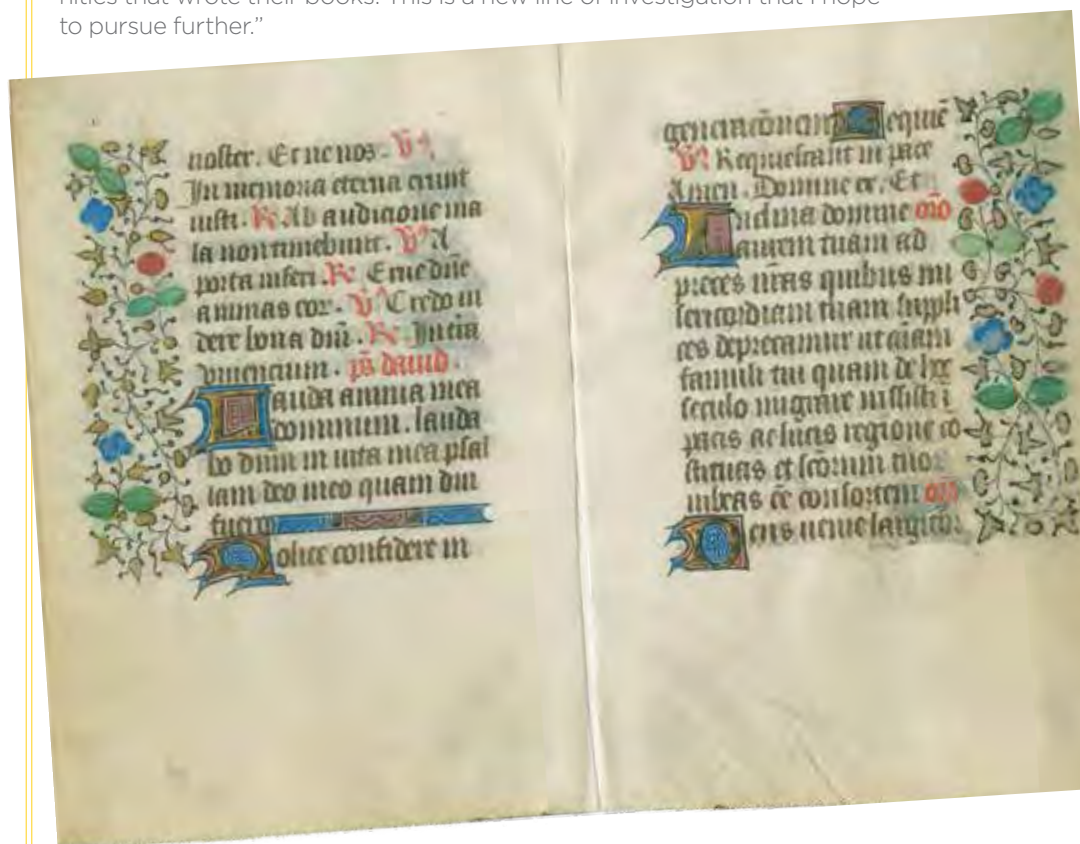 nities that wrote their books. This is a new line of investigation that I hope
to pursue further.”
noster. Et ne nos. V
In memoria eterna erunt
iusti. R Ab audicione ma
la non timebunt. V A
porta inferi. R Erue dn̄e
animas eor. V Credo ui
dere bona dn̄i. R In tr̄a
viuencium. ps̄ dauid.
Lauda anima mea
dominum. lauda
bo dnm in uita mea psal
lam deo meo quam diu
fuero
Nolite confidere in
Requiē
V Requiescant in pace
Amen. Domine ex. Et
Inclina domine orō
aurem tuam ad
preces nr̄as quibus mi
sericordiam tuam suppli
ces deprecamur ut aīam
famuli tui quam de hoc
seculo migrare iussisti ī
pacis ac lucis regione cō
stituas et scōrum tuor
iubeas ēē consortem orō
Deus uenie largitor